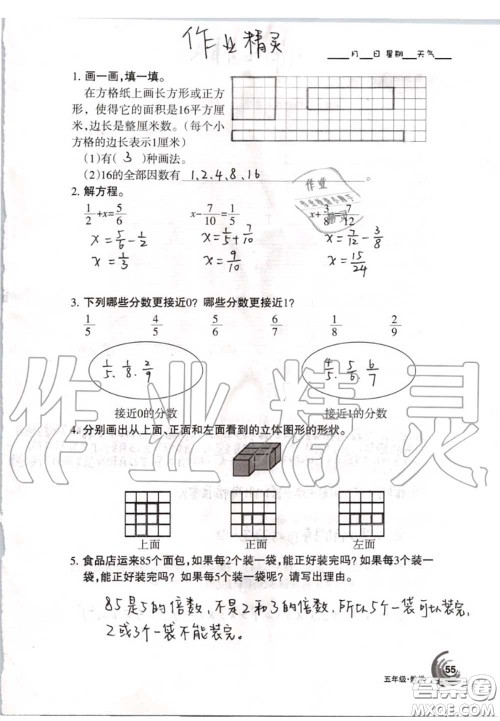 作业精灵
月 日 星期 天气
1. 画一画，填一填。
在方格纸上画长方形或正方
形，使得它的面积是16平方厘
米，边长是整厘米数。（每个小
方格的边长表示1厘米）
(1)有（ 3 ）种画法。
(2)16的全部因数有 1,2,4,8,16
2. 解方程。
1/2+x=5/6 x-7/10=1/5 x+3/8=7/12
x=5/6-1/2 x=1/5+7/10 x=7/12-3/8
x=1/3 x=9/10 x=15/24
3. 下列哪些分数更接近0？哪些分数更接近1？
1/5 4/5 5/6 6/7 1/8 2/9
1/5.1/8.2/9 4/5.5/6.6/7
接近0的分数 接近1的分数
4. 分别画出从上面、正面和左面看到的立体图形的形状。
上面 正面 左面
5. 食品店运来85个面包，如果每2个装一袋，能正好装完吗？如果每3个装一
袋，能正好装完吗？如果每5个装一袋呢？请写出理由。
85是5的倍数，不是2和3的倍数，所以5个一袋可以装完，
2或3个一袋不能装完。
55
五年级·数学
作业精灵